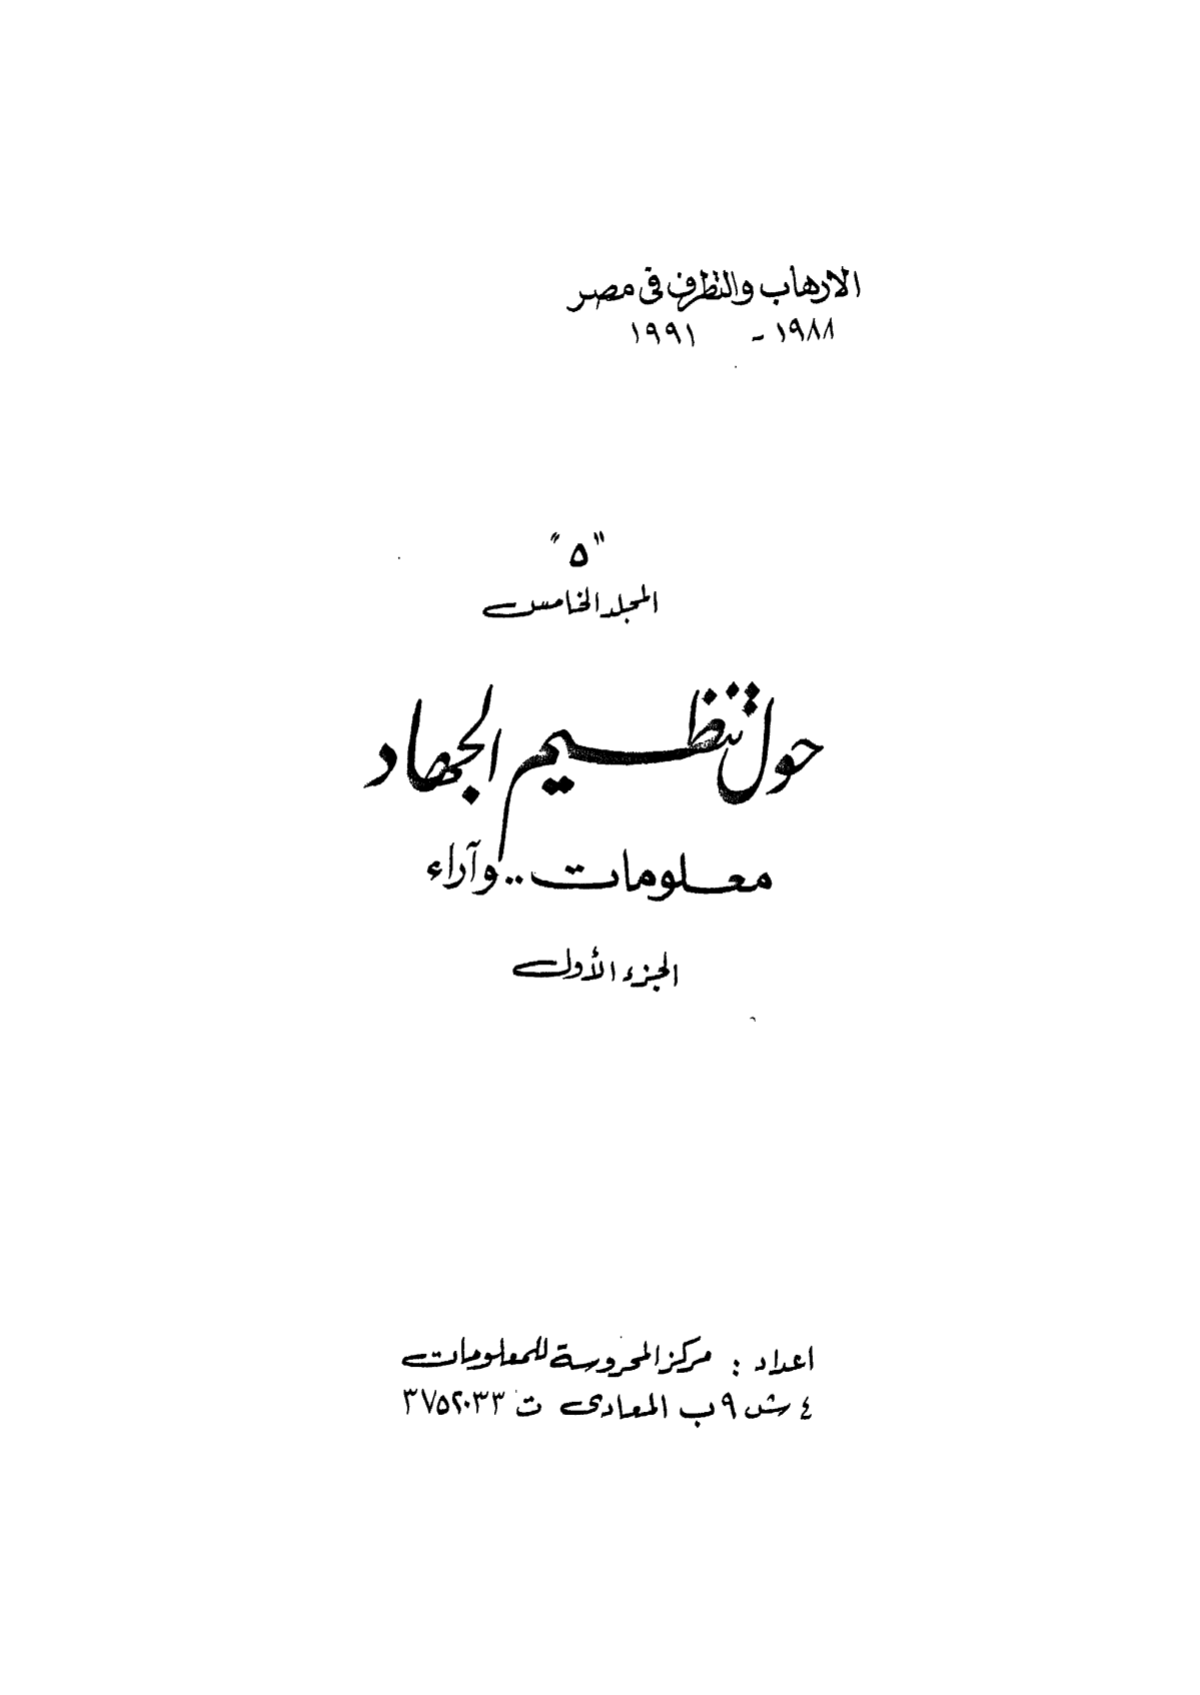 الارهاب والتطرف فى مصر
١٩٨٨ - ١٩٩١
"٥"
المجلد الخامس
حول تنظيم الجهاد
معلومات .. وآراء
الجزء الأول
اعداد : مركز المحروسة للمعلومات
٤ ش ٩ ب المعادى ت ٣٧٥٢٠٣٣